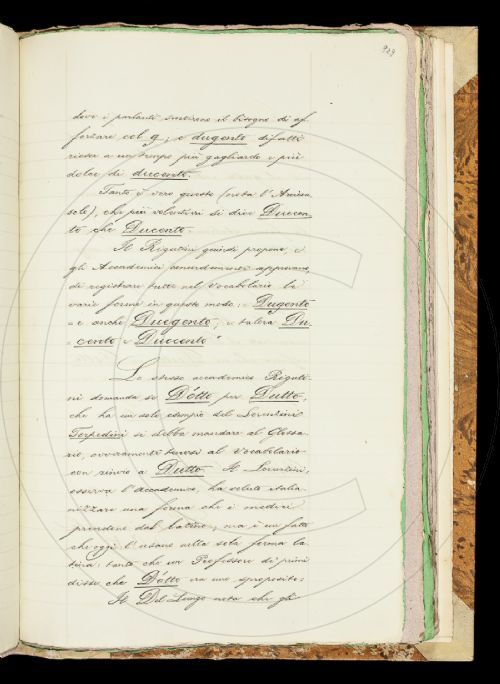 909
dove i parlanti sentirono il bisogno di af
forzare col g; e dugento difatti
riesce a un tempo più gagliardo e più
dolce di ducento.
Tanto è vero questo (nota l'Arcicon
solo), che più volentieri si dice Duecen
to che Ducento.
Il Rigutini quindi propone, e
gli Accademici concordemente approvano,
di registrare tutte nel Vocabolario le
varie forme in questo modo: Dugento
= e anche Duegento, e talora Du=
= cento e Duecento"
Lo stesso accademico Riguti
ni domanda se Dotto per Dutto,
che ha un solo esempio del Lorenzini
Torpedini si debba mandare al Glossa
rio, ovveramente tenersi al Vocabolario
con rinvio a Dutto. Il Lorenzini,
osserva l'Accademico, ha voluto italia
nizzare una forma che i medici
prendono dal latino; ma è un fatto
che oggi l'usano nella sola forma la
tina: tanto che un Professore di primi
disse che Dotto era uno sproposito.
Il Del Lungo nota che gli